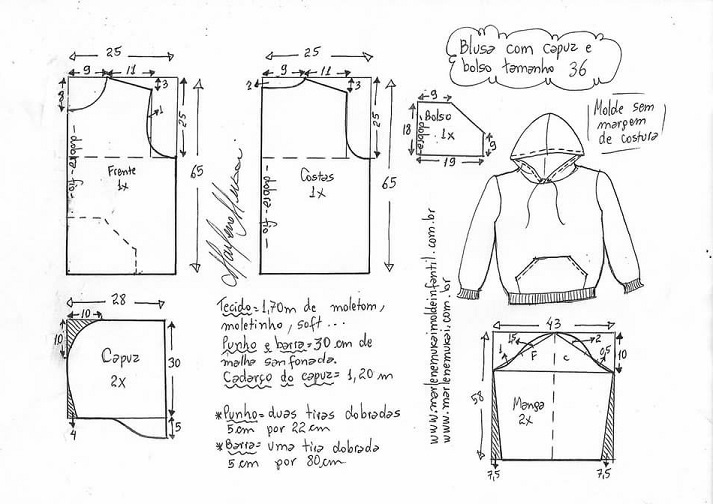 Blusa com capuz e
bolso tamanho 36
Molde sem
margem
de costura
25
9
11
3
8
1
25
65
dobra - fio
Frente
1x
25
9
11
2
3
25
65
dobra - fio
Costas
1x
9
18
dobra
Bolso
1x
9
19
28
10
10
Capuz
2x
30
4
5
Tecido = 1,70m de moletom,
moletinho, soft...
Punho e barra = 30 cm de
malha sanfonada.
Cadarço do capuz = 1,20 m
*Punho = duas tiras dobradas
5 cm por 22 cm
*Barra = uma tira dobrada
5 cm por 80 cm
www.marlenemukaimoldeinfantil.com.br
www.marlenemukai.com.br
43
1
1,5
F
c
2
0,5
10
58
Manga
2x
7,5
7,5